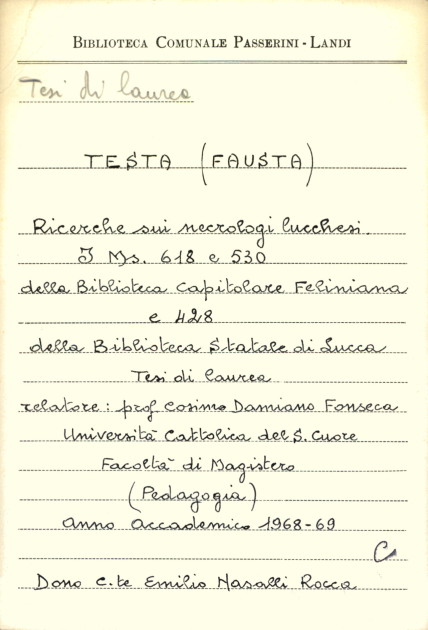 BIBLIOTECA COMUNALE PASSERINI - LANDI
Tesi di laurea
TESTA (FAUSTA)
Ricerche sui necrologi lucchesi.
I Ms. 618 e 530
della Biblioteca Capitolare Feliniana
e 428
della Biblioteca Statale di Lucca
Tesi di laurea
relatore: prof Cosimo Damiano Fonseca
Università Cattolica del S. Cuore
Facoltà di Magistero
(Pedagogia)
Anno Accademico 1968-69
C
Dono c.te Emilio Nasalli Rocca